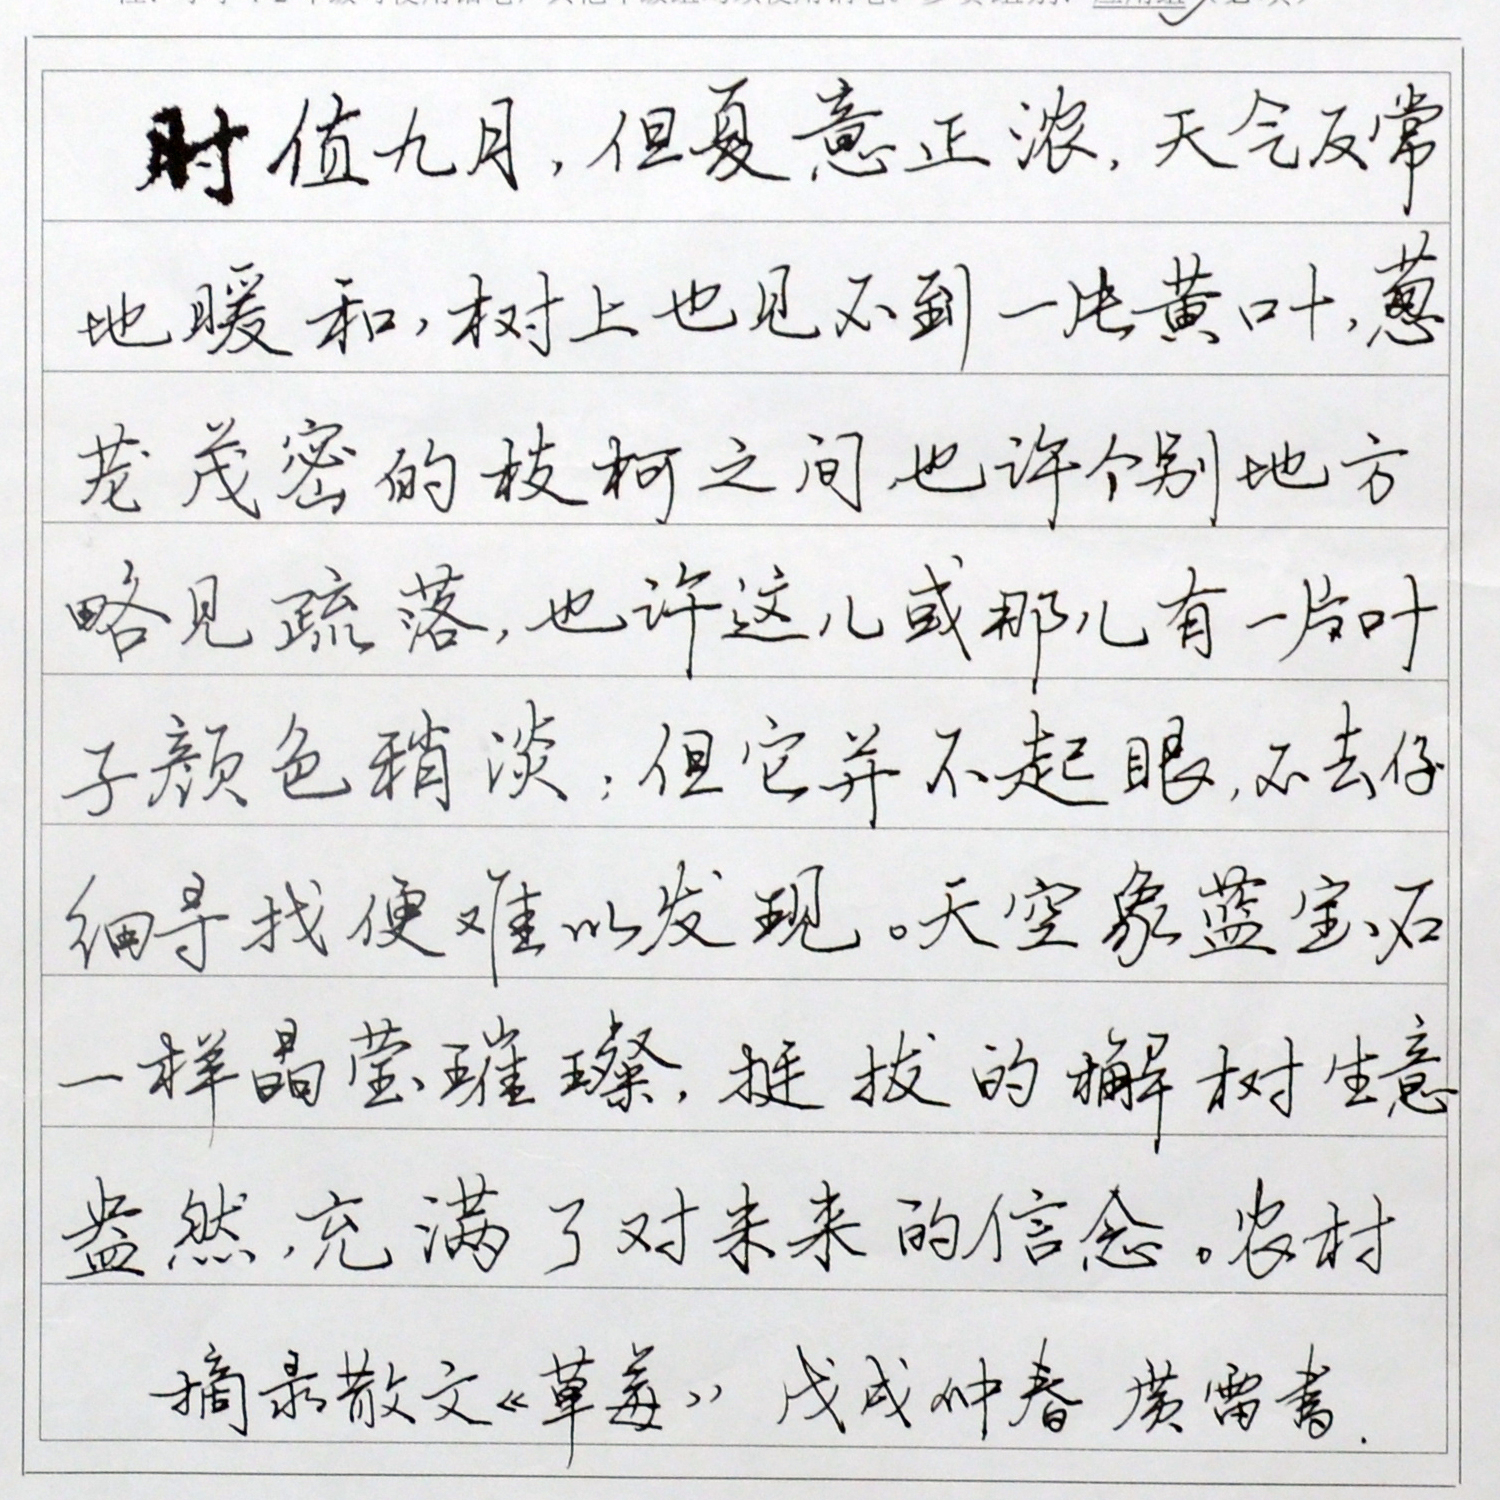 时值九月，但夏意正浓，天气反常
地暖和，树上也见不到一片黄叶，葱
茏茂密的枝柯之间，也许个别地方
略见疏落，也许这儿或那儿有一片叶
子颜色稍淡；但它并不起眼，不去仔
细寻找便难以发现。天空象蓝宝石
一样晶莹璀璨，挺拔的槲树生意
盎然，充满了对未来的信念。农村
摘录散文《草莓》 戊戌仲春 广雷书.